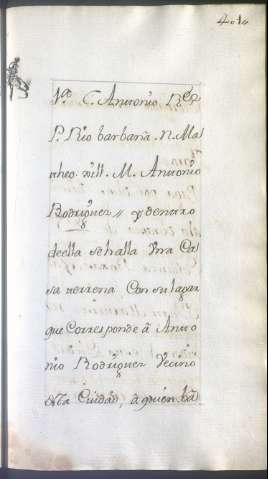 401o
Vº C. Antonio Rºs
P. Rio barbaña. N. Ma
theo. Vill. M. Antonio
Rodriguez // y dentro
de ella se halla Vna Ca
sa terrena Con su lagar
que Corresponde â Anto
nio Rodriguez Vecino
Ciudad, â quien